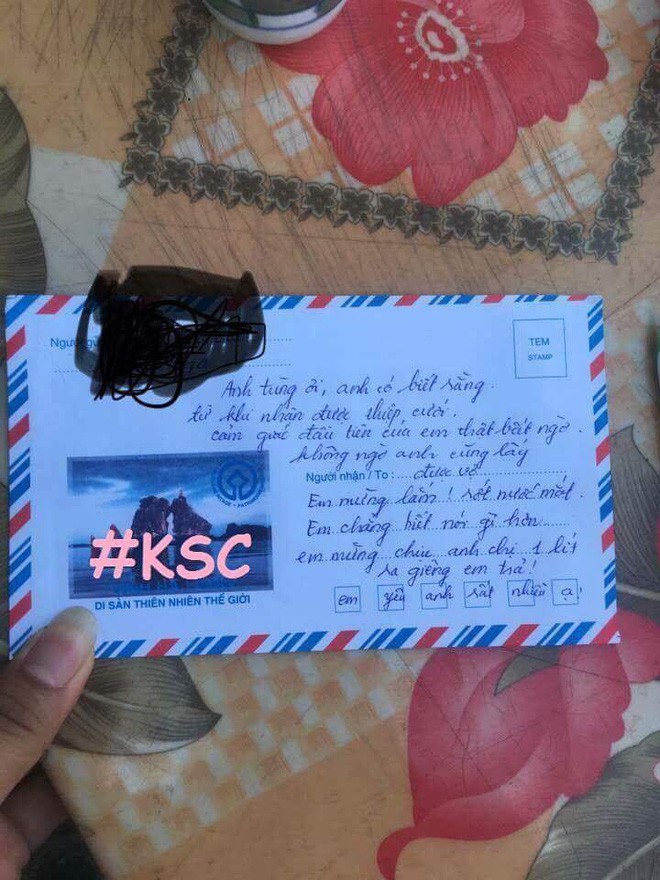 Người gửi
TEM
STAMP
Anh tùng ơi, anh có biết rằng.
từ khi nhận được thiệp cưới.
cảm giác đầu tiên của em thật bất ngờ.
không ngờ anh cũng lấy
Người nhận / To : được vợ
Em mừng lắm! rớt nước mắt.
Em chẳng biết nói gì hơn
em mừng chúa anh chị 1 lít
ra giêng em trả!
em yêu anh rất nhiều ạ!
#KSC
DI SẢN THIÊN NHIÊN THẾ GIỚI